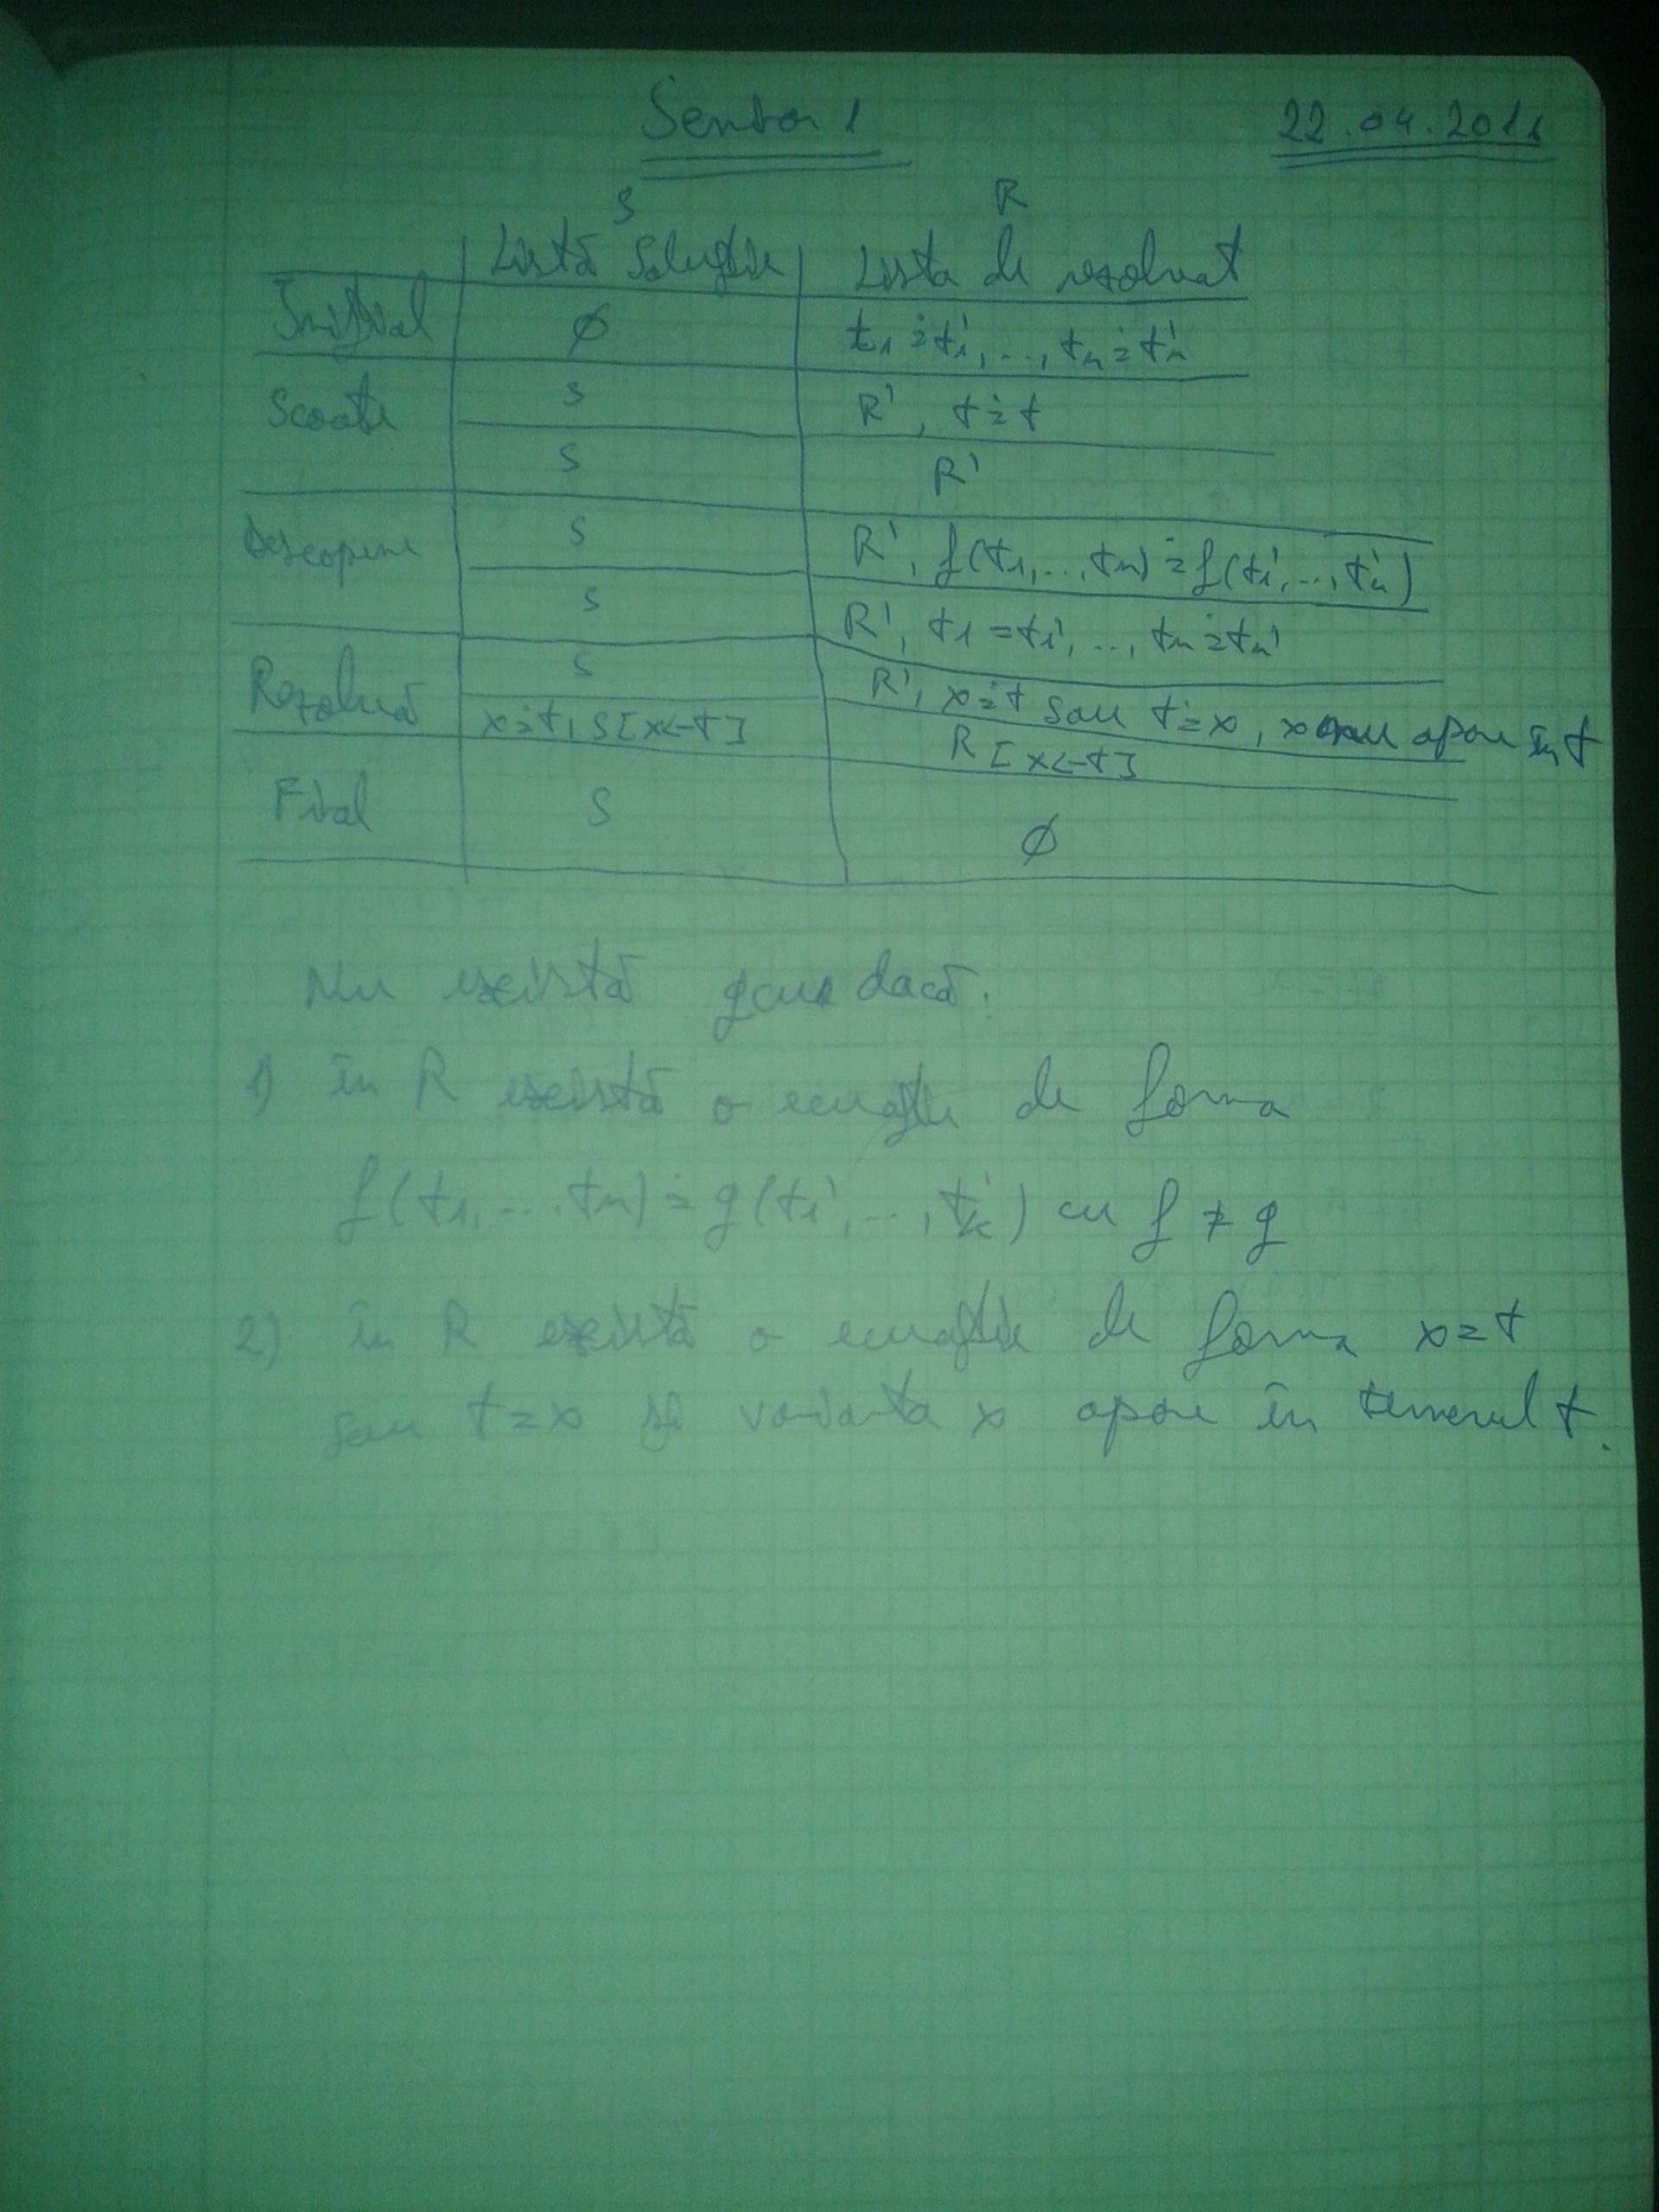 Seminar 1 22.04.2011
S R
Listă Soluție Lista de rezolvat
Inițial ∅ t₁ ≐ t₁', ..., tₙ ≐ tₙ'
Scoate S R', t ≐ t
S R'
Descopune S R', f(t₁,...,tₙ) ≐ f(t₁',...,tₙ')
S R', t₁ = t₁', ..., tₙ ≐ tₙ'
Rezolvă S R', x ≐ t sau t ≐ x, x nu apare în t
x ≐ t, S[x<-t] R[x<-t]
Final S ∅
Nu există gcu dacă:
1) în R există o ecuație de forma
f(t₁,...tₙ) ≐ g(t₁',...,tₖ') cu f ≠ g
2) în R există o ecuație de forma x = t
sau t = x și variabila x apare în termenul t.